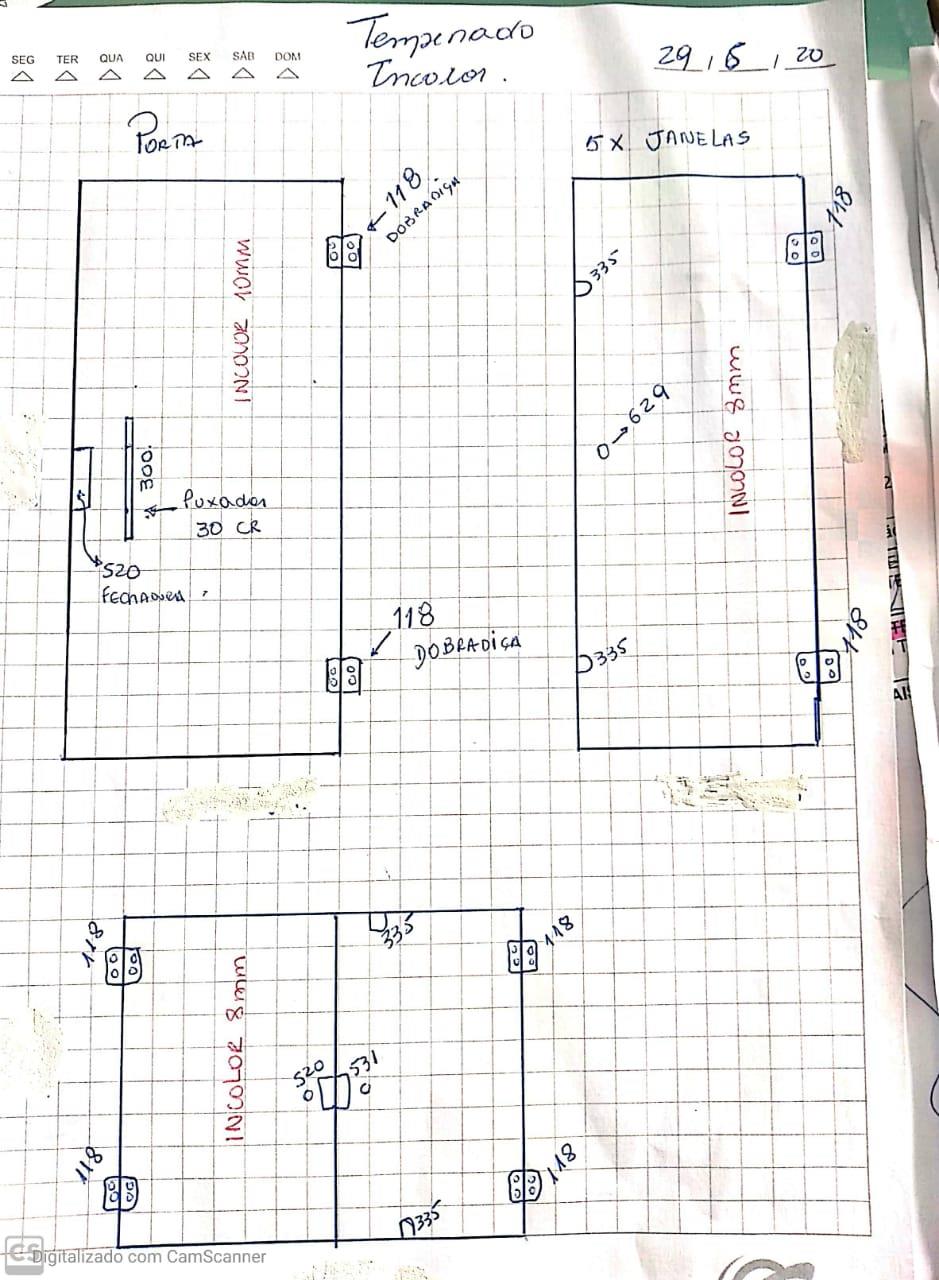 SEG TER QUA QUI SEX SÁB DOM
Temperado
Incolor.
29, 6, 20
PORTA
5X JANELAS
118
DOBRADIÇA
118
INCOLOR 10MM
335
629
INCOLOR 8mm
300.
Puxador
30 CR
520
FECHADURA
118
DOBRADIÇA
335
118
118
335
118
INCOLOR 8mm
520
531
118
118
335
CS Digitalizado com CamScanner